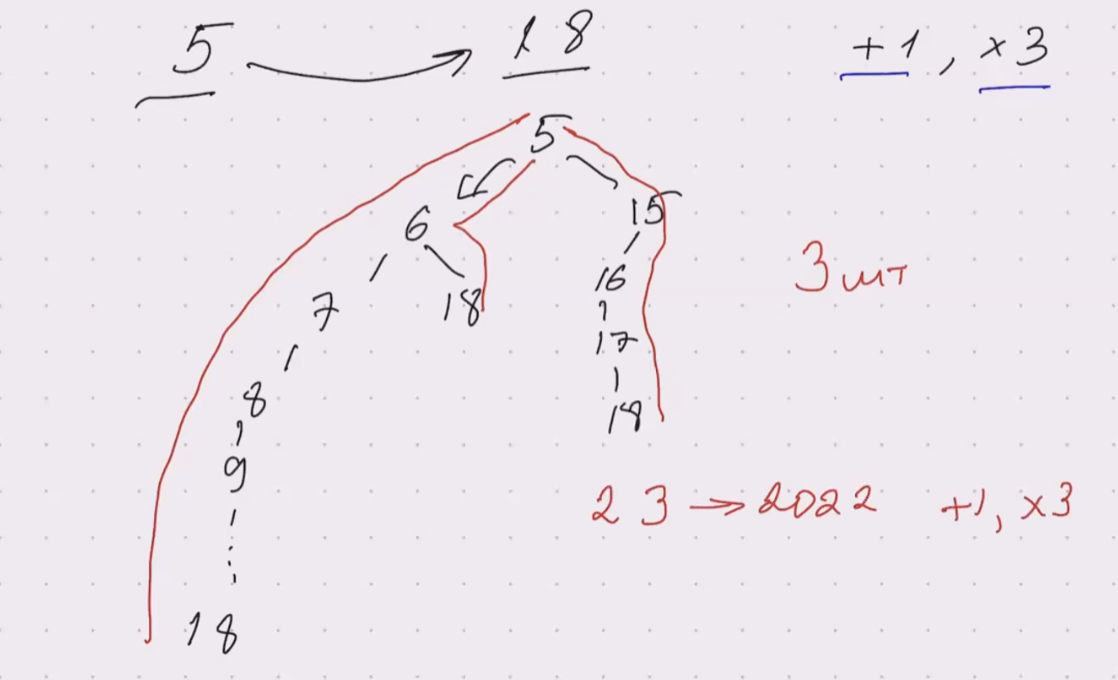 5 → 18 +1, ×3
5
6 15
7 18 16
8 17
9 18
⋮
18
3 шт
23 → 2022 +1, ×3